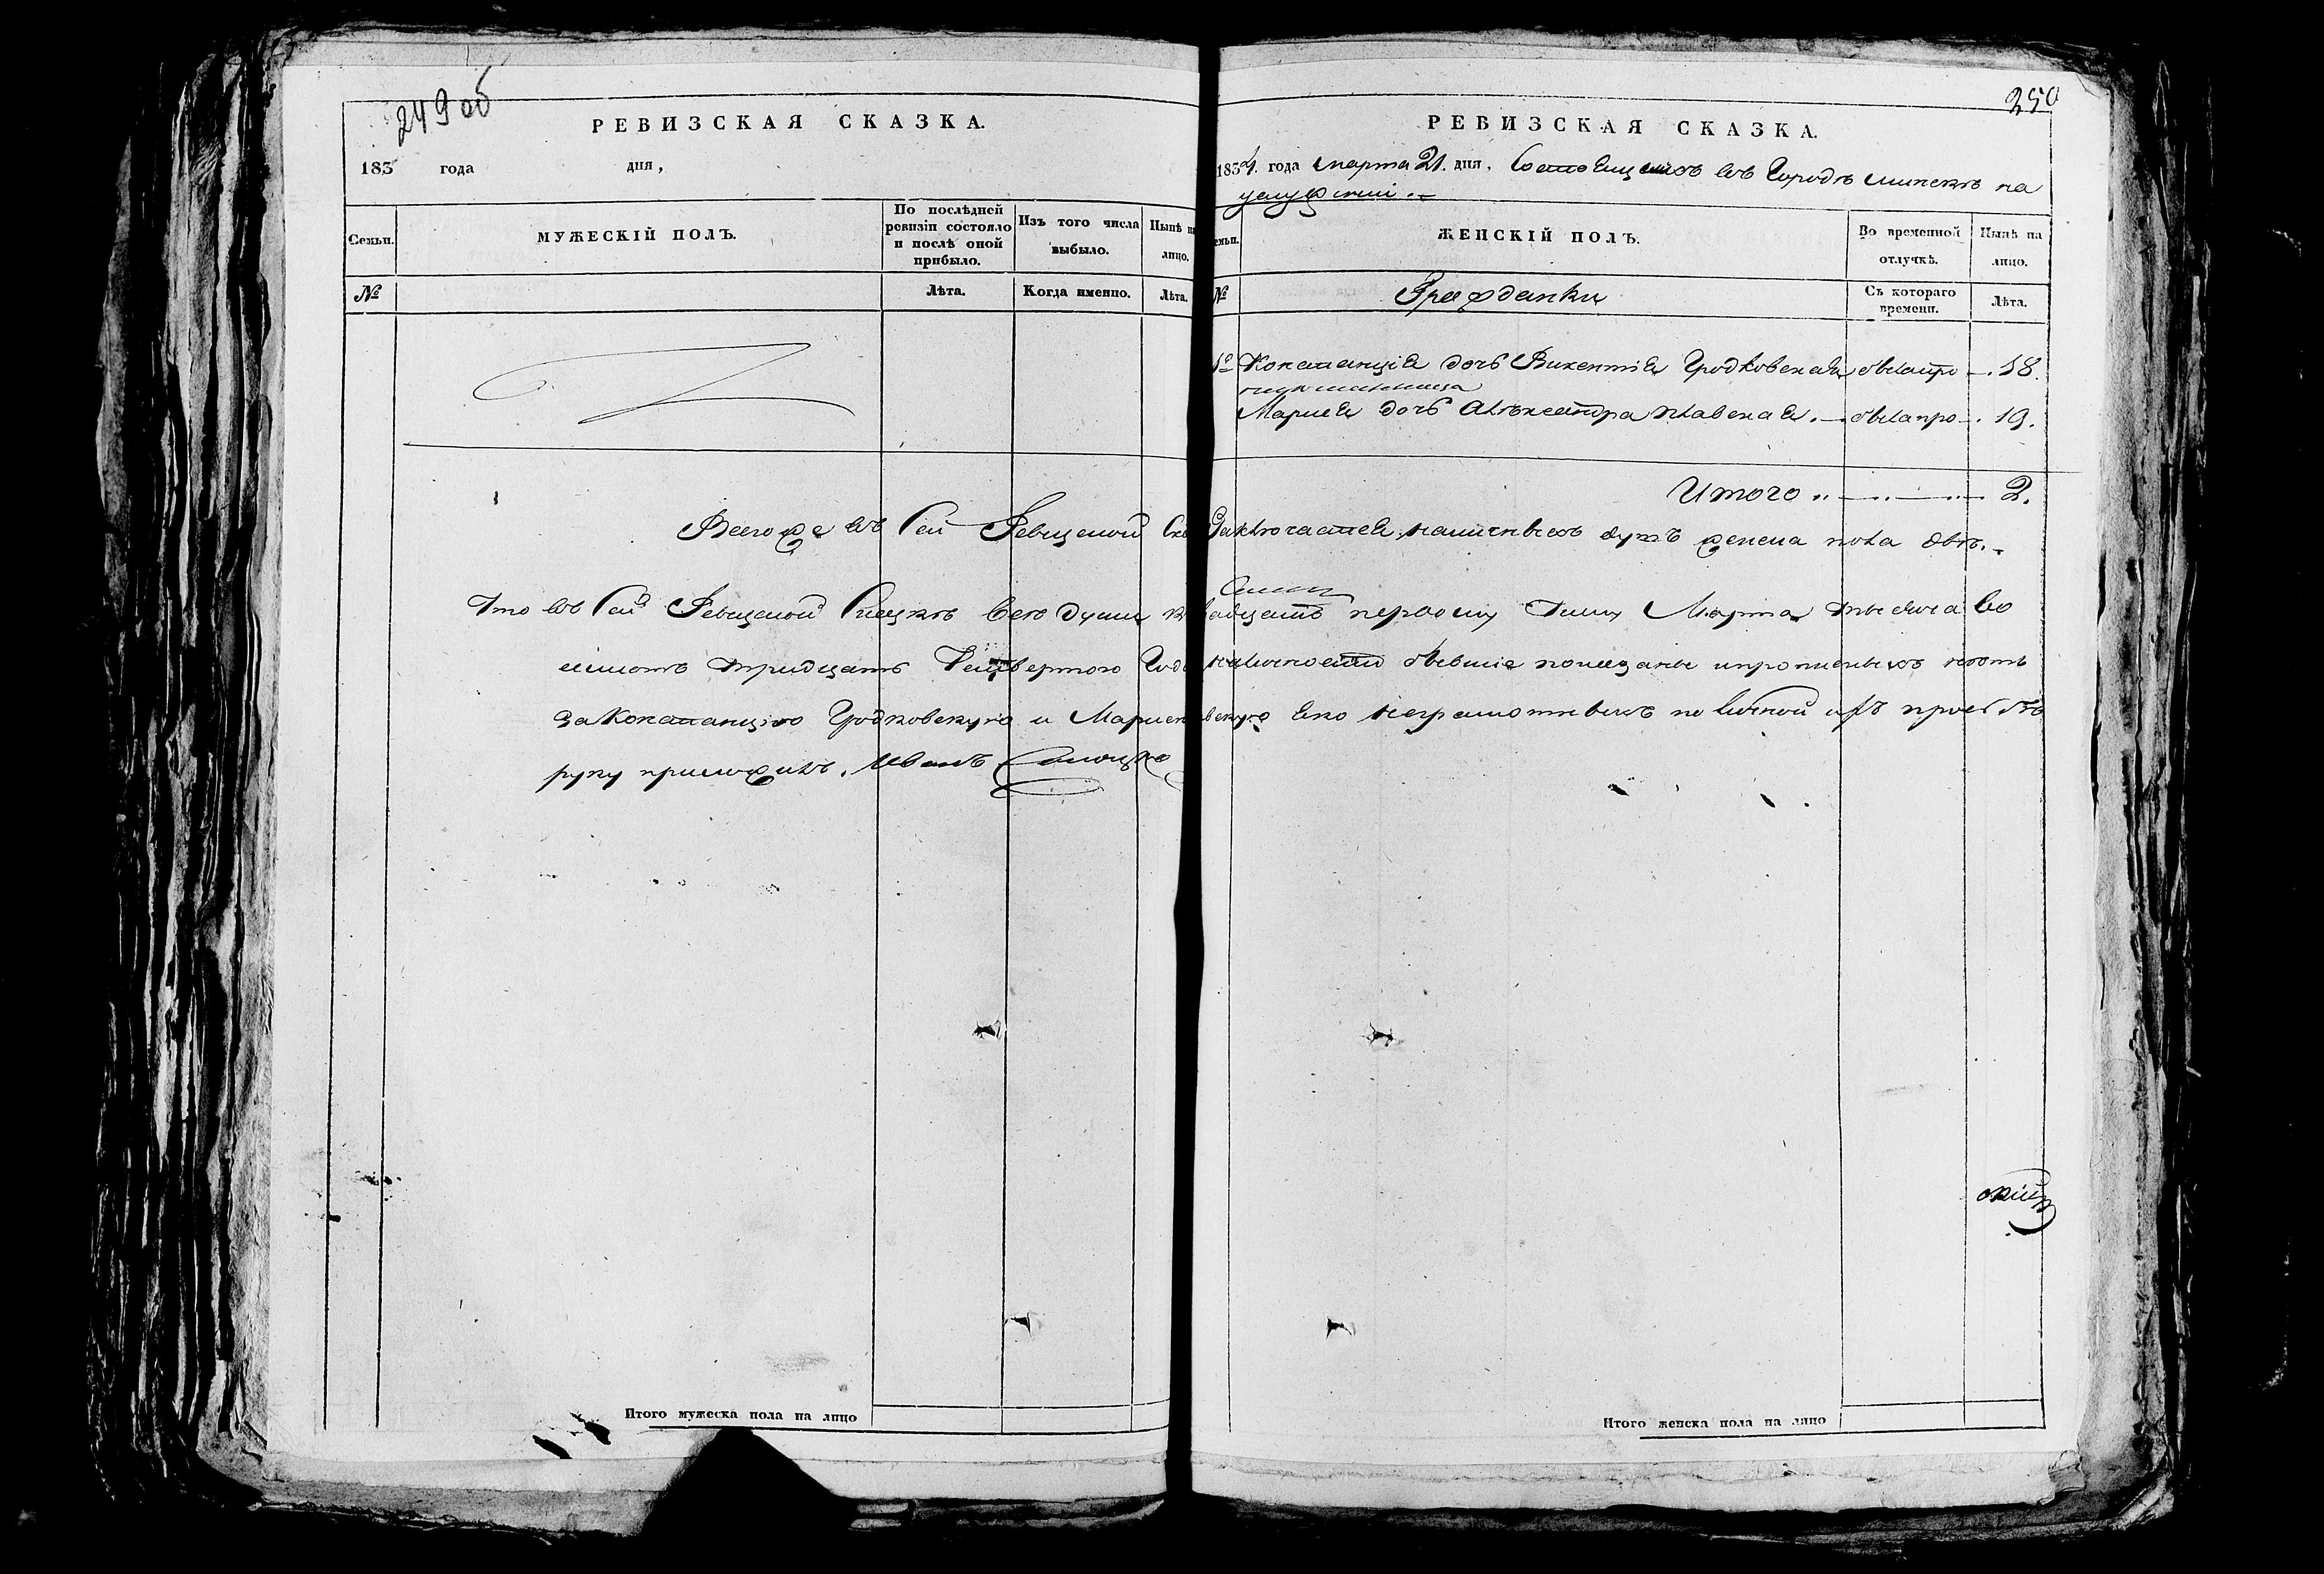 249 об
РЕВИЗСКАЯ СКАЗКА.
183 года дня,
Семьи.
МУЖЕСКІЙ ПОЛЪ.
По послѣдней ревизіи состояло и послѣ оной прибыло.
Изъ того числа выбыло.
Нынѣ на лицо.
№
Лѣта.
Когда именно.
Лѣта.
250
РЕВИЗСКАЯ СКАЗКА.
1834. года марта 21. дня, Состоящихъ въ Городѣ минскѣ на
услуженіи.
емьи.
ЖЕНСКІЙ ПОЛЪ.
Во временной отлучкѣ.
Нынѣ на лицо.
№
Гражданки
Съ котораго времени.
Лѣта.
Констанція дочь Викентія Гродковская 18.
Марися дочь Александра 19.
Итого 2.
Всего же въ сей Ревизской Ска Заключается наличныхъ душъ женска пола двѣ.
Что въ сей Ревизской Сказкѣ всѣ души къ двадцать первому Числу Марта тысяча во
семьсотъ тридцать Четвертого Года наличности бывшіе показаны и прописныхъ нѣтъ
за Констанцію Гродковскую и яко неграмотныхъ по личной ихъ прозбѣ
руку приложилъ. Иванъ
Итого мужеска пола на лицо
Итого женска пола на лицо